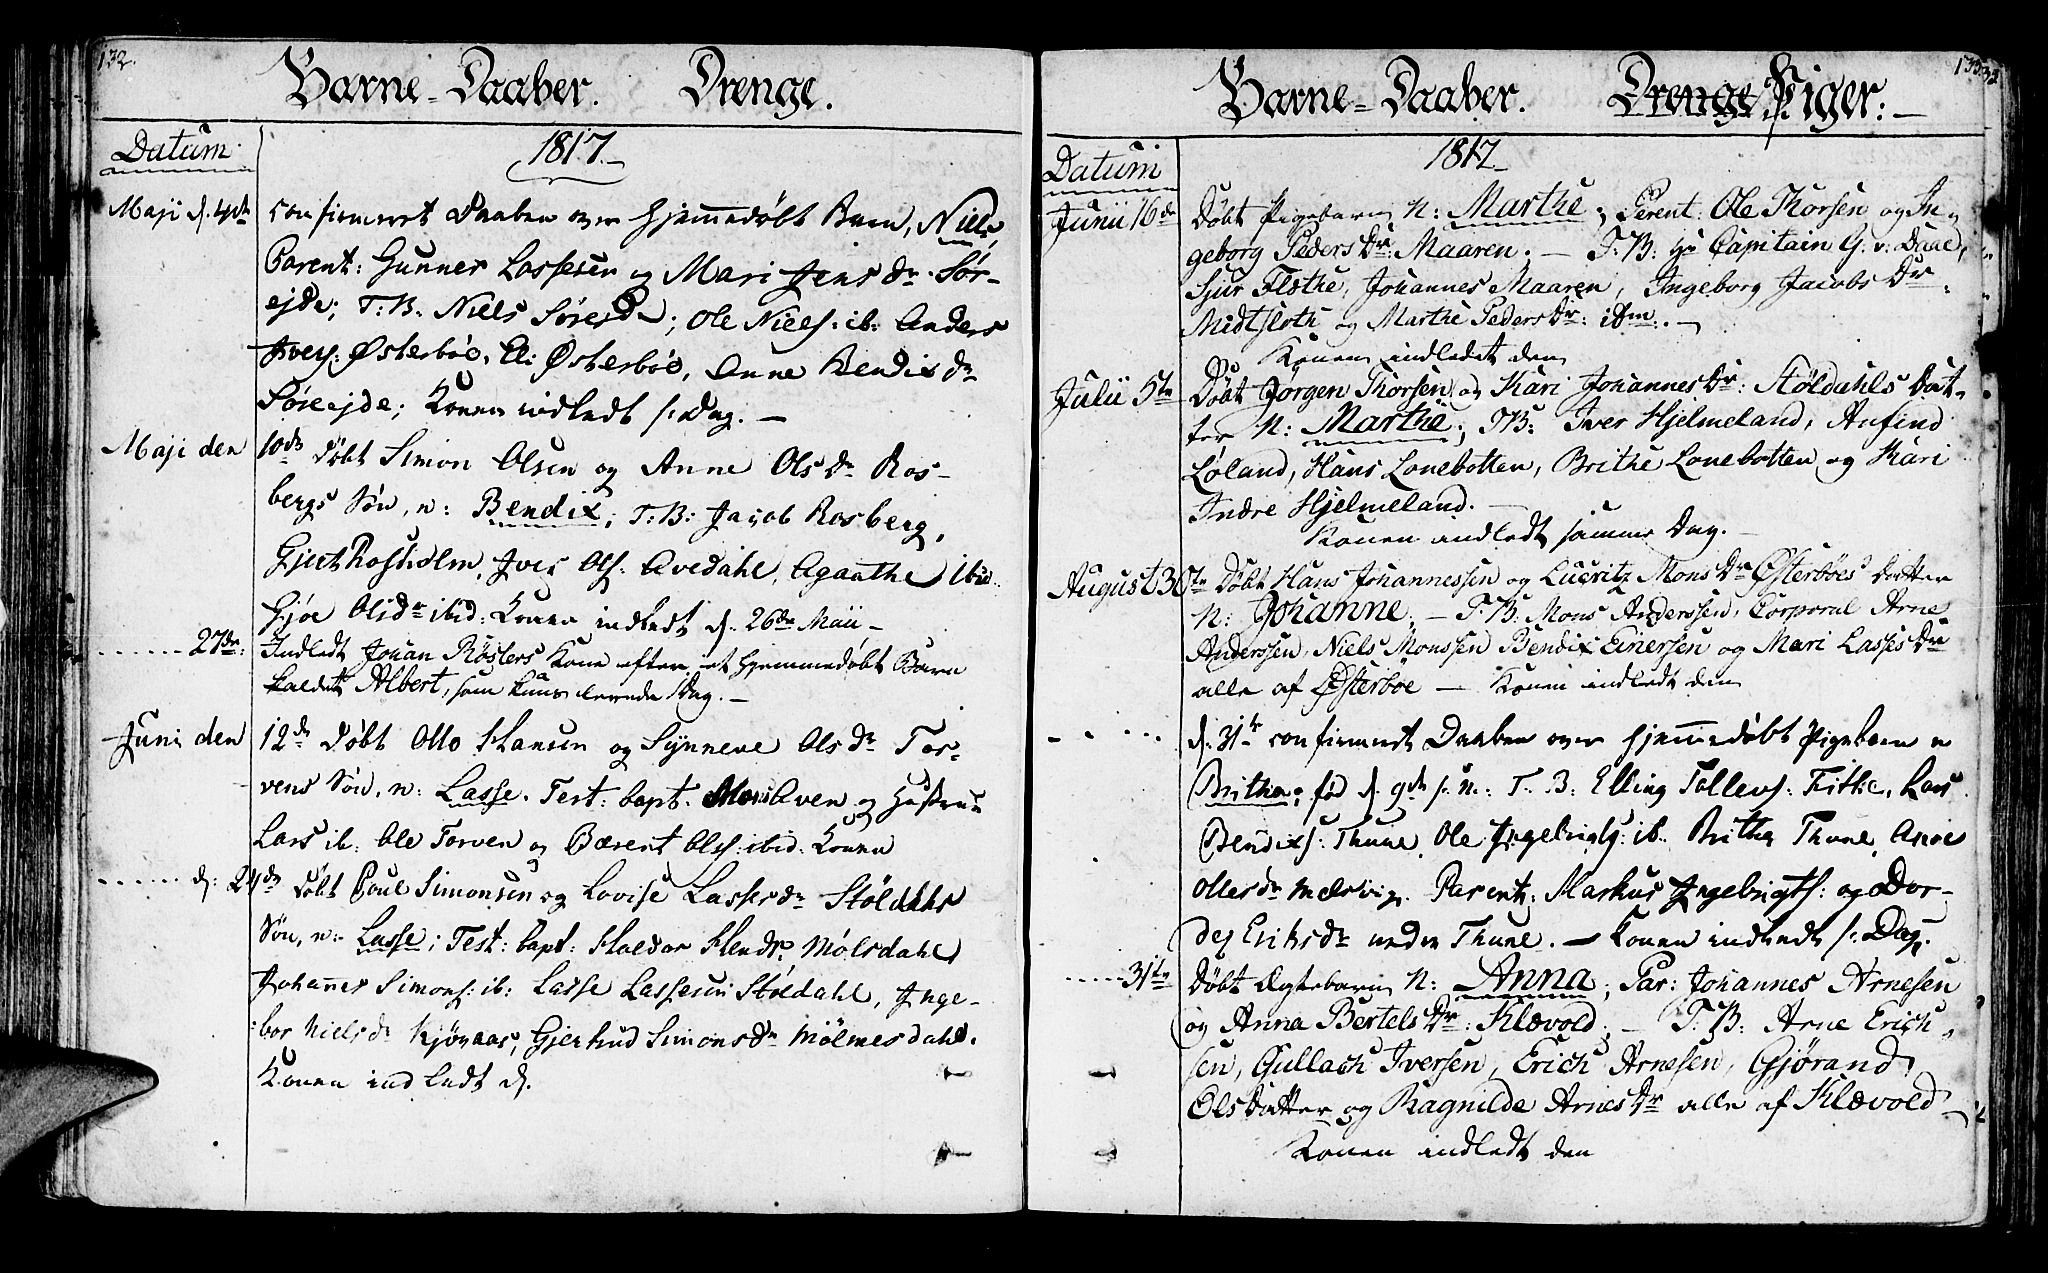 132.
Barne-Daaber. Drenge.
Datum. 1817.
Maji d. 4de confirmeret Daaben over hjemmedøbt Barn, Niels,
Parent: Gunner Lassesen og Mari Jens Dr. Sør-
ejde; T:B: Niels Sørejde; Ole Niels: ib: Anders
Ivers: Østerbøe, El: Østerbøe, Anne Bendix Dr
Sørejde; Konen indledt s: Dag. —
Maji den 10de Døbt Simon Olsen og Anne Ols Dr Ros-
bergs Søn, n: Bendix; T:B: Jacob Rosberg,
Gjert Rosholm, Iver Ols: Avedahl, Agaathe ibid.
Gjøe Olsdr ibid: Konen indledt d. 26de Maii —
27de: Indledt Johan Røslers Kone efter et hjemmedøbt Barn
kaldet Albert, som kuns levede 1 Dag. —
Juni den 12de Døbt Otto Hansen og Synneve Ols Dr Tor-
vens Søn, n: Lasse. Test: bapt. Mons Aven og Hustrue
Lars ib: Ole Torven og Bærent Ols: ibid: Konen
d: 24de Døbt Poul Simonsen og Lovise Lasses dr Støldahls
Søn, n: Lasse; Test: bapt: Haldor Hendr: Mölsdahl
Johannes Simons: ib: Lasse Lassesen Støldahl, Inge-
bor Niels dr Kjönaas, Gjertrud Simons dr Mölmesdahl.
Konen indledt d.
133
Barne-Daaber. Drenge Piger: —
Datum 1817
Junii 16de Døbt Pigebarn N: Marthe; Parent: Ole Thorsen og In-
geborg Peders Dr: Maaren. — T:B: Hr Capitain G. v. Daae,
Sjur Flæthe, Johannes Maaren, Ingeborg Jacobs Dr
Midtfloth og Marthe Peders Dr: ibm. —
Konen indledet den
Julii 5te Døbt Jörgen Thorsen og Kari Johannes Dr: Støldahls Dat-
ter N: Marthe; TB: Iver Hjelmeland, Anfind
Løland, Hans Lonebotten, Brithe Lonebotten og Kari
Indre Hjelmeland. —
Konen indledt samme Dag. —
August 30te Døbt Hans Johannessen og Lucritz Mons Dr Østerbøes Datter
N: Johanne. — T:B: Mons Anderssen, Corporal Arne
Anderssen, Niels Monssen Bendix Einersen og Mari Lasses Dr
alle af Østerbøe — Konen indledt den
d: 31te confirmeret Daaben over hjemmedøbt Pigebarn n
Brithe; fød d. 9de s: n.: T. B: Elling Tollevs: Fittie, Lars
Bendixs: Thune, Ole Ingebrigts: ib. Britha Thune, Anne
Olles dr Mersvig. Parent: Markus Ingebrigts: og Dor-
dej Eriks dr nedre Thune. — Konen indledt s: Dag.
31te Døbt Ægtebarn N: Anna; Par: Johannes Arnesen
og Anna Bertels Dr: Klævold. — T:B: Arne Erich-
sen, Gullach Iversen, Erich Arnesen, Gjørand
Olsdatter og Ragnilde Arnes Dr alle af Klævold —
Konen indledt den